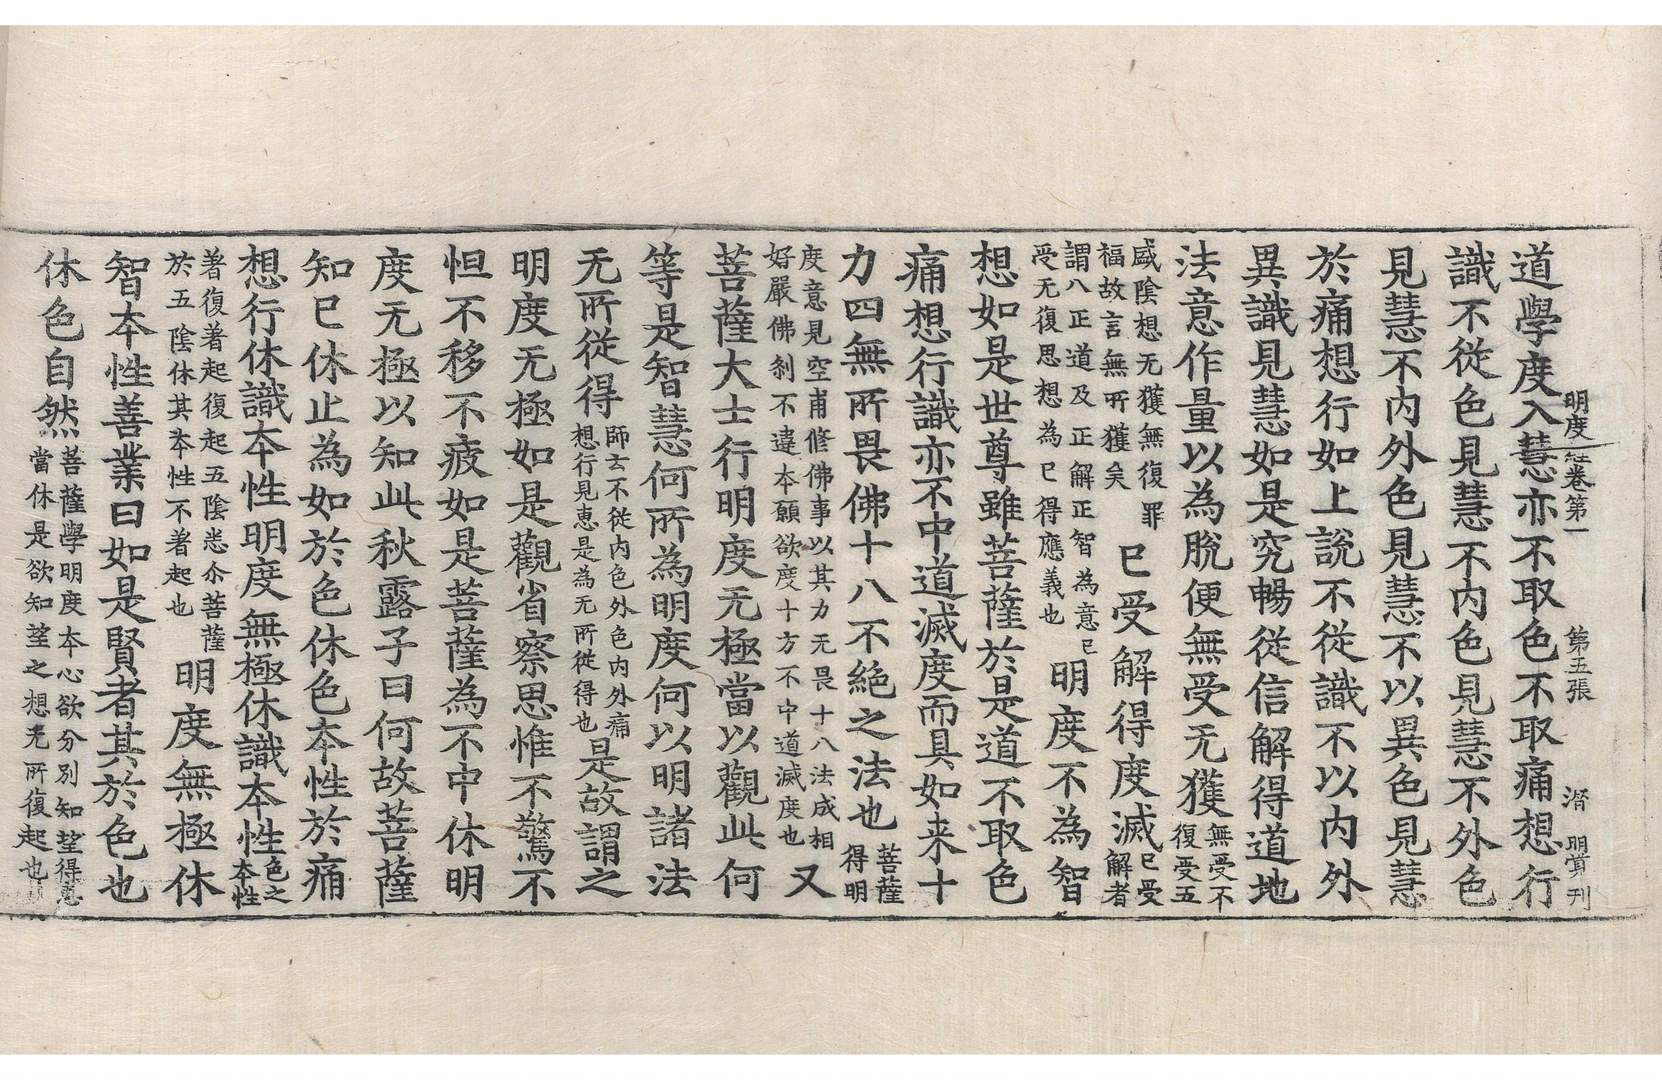 明度經卷第一 第五張 潛 明質刊
道學度入慧亦不取色不取痛想行
識不從色見慧不內色見慧不外色
見慧不內外色見慧不以異色見慧
於痛想行如上說不從識不以內外
異識見慧如是究暢從信解得道地
法意作量以為脫便無受无獲
無受不
復受五
盛陰想无獲無復罪
福故言無所獲矣
已受解得度滅
已受
解者
謂八正道及正解正智為意已
受无復思想為已得應義也
明度不為智
想如是世尊雖菩薩於是道不取色
痛想行識亦不中道滅度而具如来十
力四無所畏佛十八不絕之法也
菩薩
得明
度意見空甫修佛事以其力无畏十八法成相
好嚴佛剎不違本願欲度十方不中道滅度也
又
菩薩大士行明度无極當以觀此何
等是智慧何所為明度何以明諸法
无所從得
師云不從內色外色內外痛
想行見恵是為无所從得也
是故謂之
明度无極如是觀省察思惟不驚不
怛不移不疲如是菩薩為不中休明
度无極以知此秋露子曰何故菩薩
知已休止為如於色休色本性於痛
想行休識本性明度無極休識本性
色之
本性
著復著起復起五陰悉尒菩薩
於五陰休其本性不著起也
明度無極休
智本性善業曰如是賢者其於色也
休色自然
菩薩學明度本心欲分別知望得恵
當休是欲知望之想无所復起也